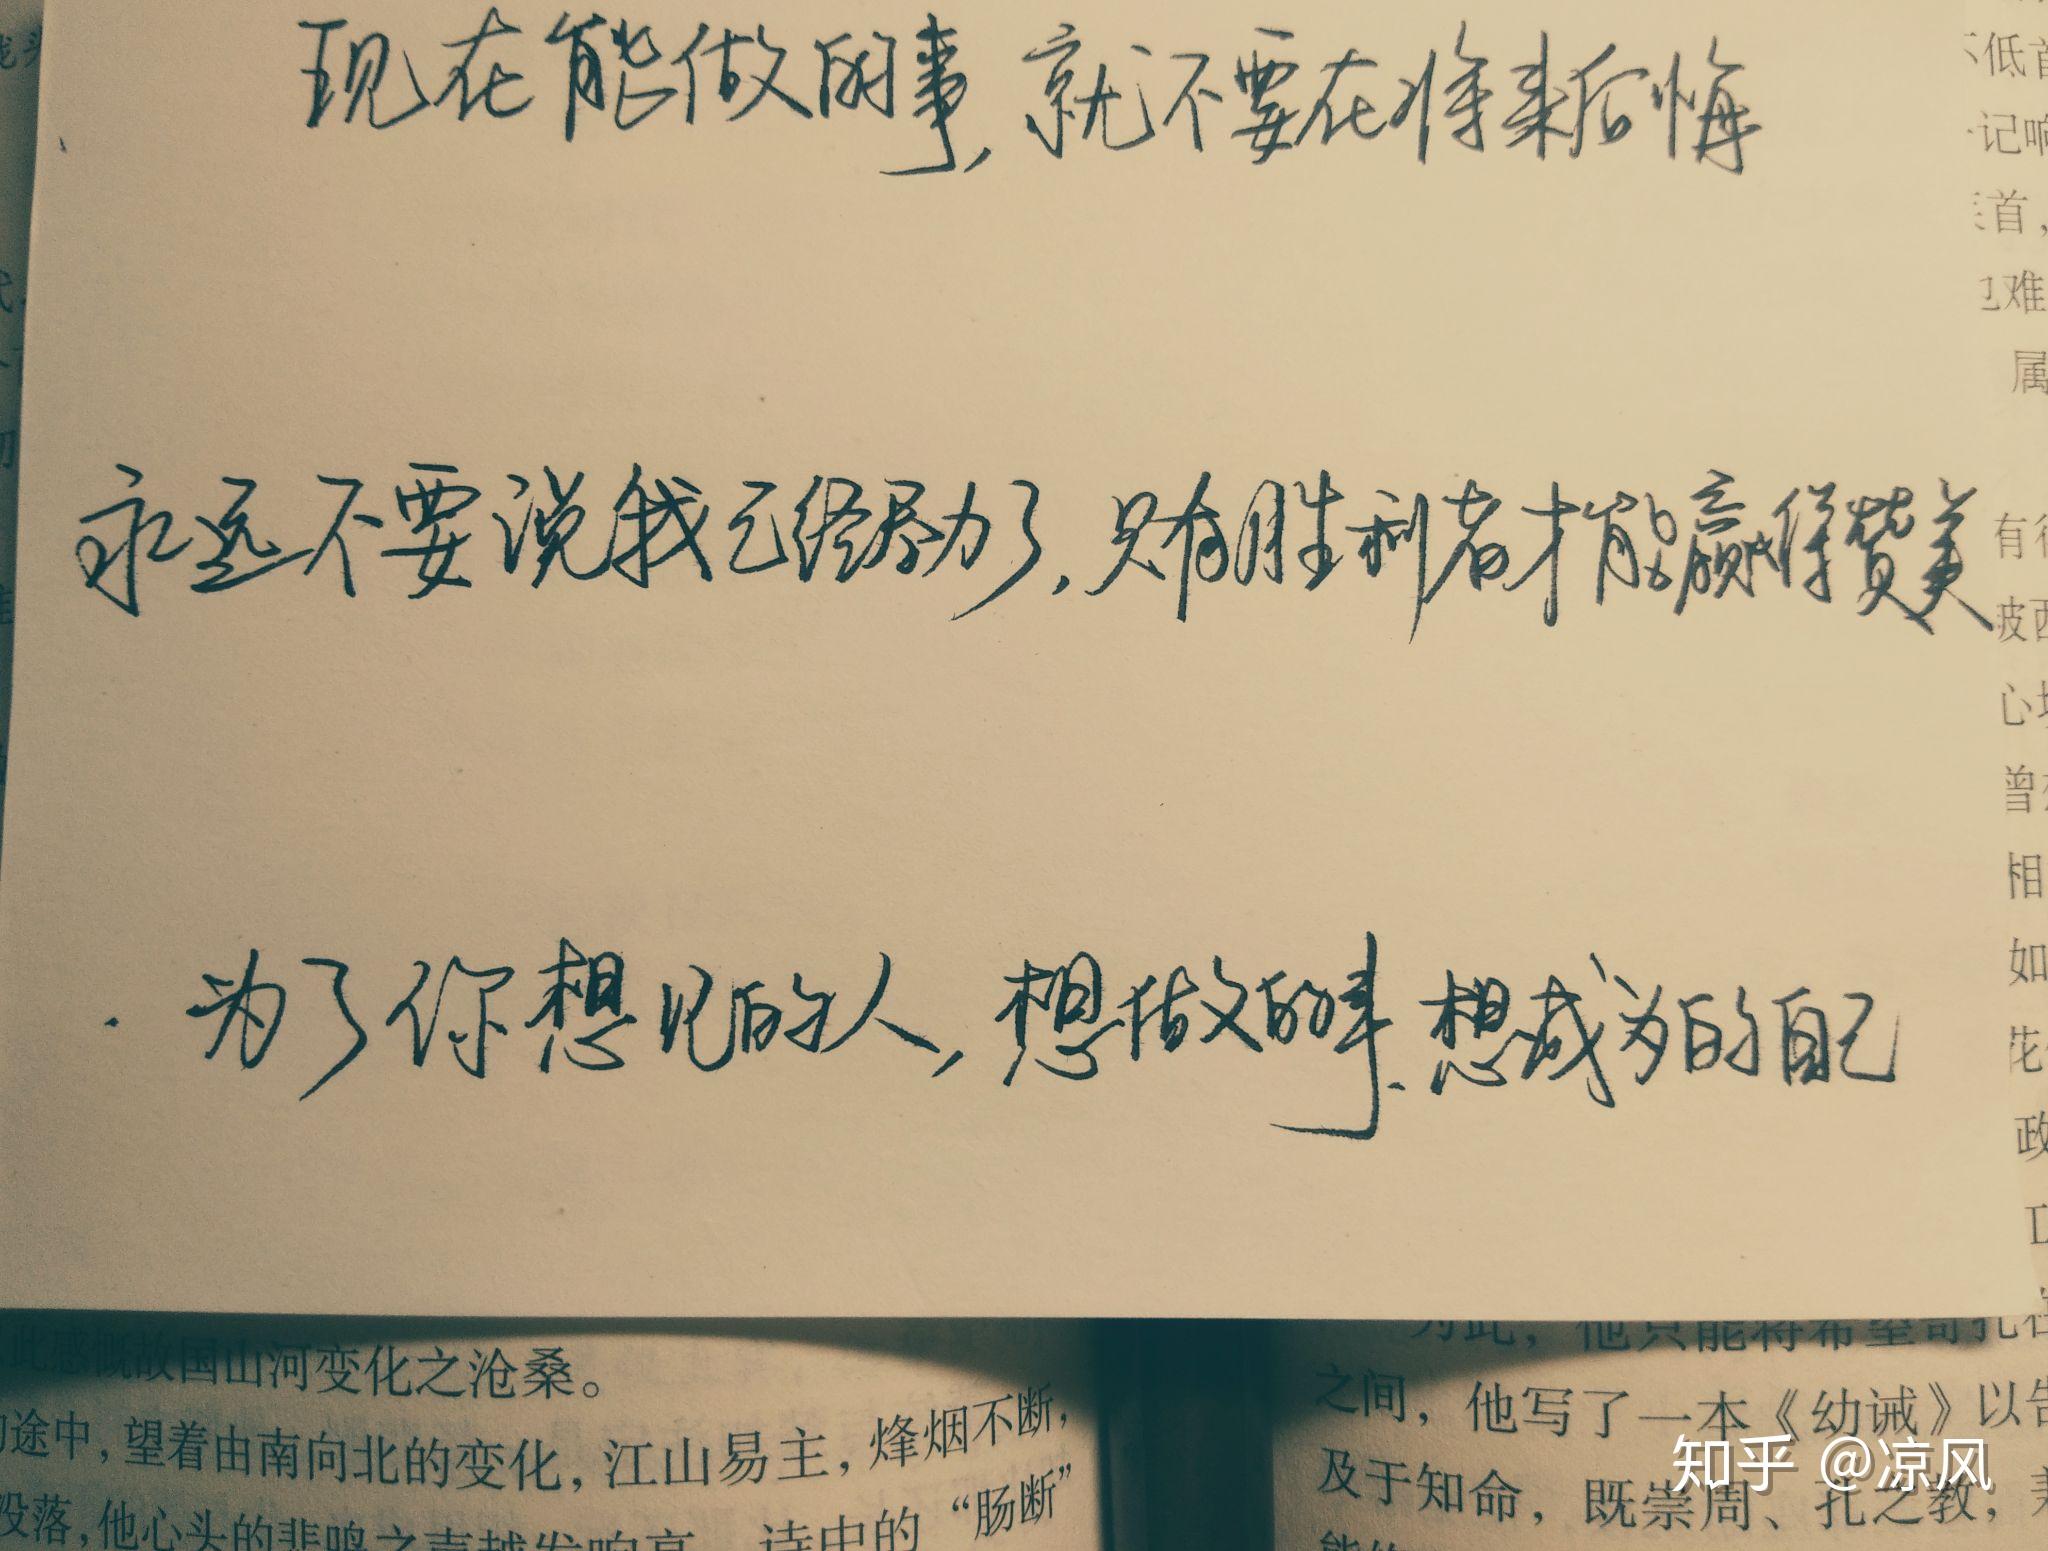 现在能做的事，就不要在将来后悔
永远不要说我已经尽力了，只有胜利者才能赢得赞美
为了你想见的人，想做的事.想成为的自己
不低首
记响
首，
也难
属
有很
玻西
心坎
曾
相
如
花
政
此感慨故国山河变化之沧桑。
途中，望着由南向北的变化，江山易主，烽烟不断，
没落，他心头的悲鸣之声越发响亮 诗中的“肠断”
为此，他只能将希望寄托在
之间，他写了一本《幼诫》以告
及于知命，既崇周、孔之教，兼
知乎 @凉风